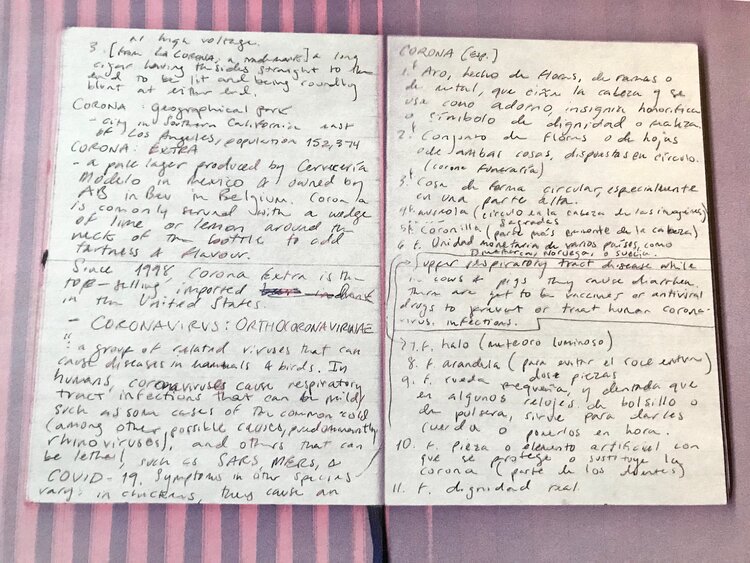 at high voltage.
3. [from La CORONA, a trademark] a long
cigar having the sides straight to the
end to be lit and being roundly
blunt at either end.
CORONA: geographical
- city in Southern California east
of Los Angeles, population 152,374
CORONA: EXTRA
- a pale lager produced by Cervecería
Modelo in Mexico & owned by
AB in Bev in Belgium. Corona
is comonly served with a wedge
of lime or lemon around the
neck of the bottle to add
tartness & flavour.
Since 1998 Corona Extra is the
top-selling imported
in the United States.
- CORONAVIRUS: ORTHOCORONAVIRINAE
: a group of related viruses that can
cause diseases in mammals & birds. In
humans, coronaviruses cause respiratory
tract infections that can be mild,
such as some cases of the common cold
(among other possible causes, predominantly
rhinoviruses), and others that can
be lethal, such as SARS, MERS, &
COVID-19. Symptoms in other species
vary: in chickens, they cause an
CORONA [esp.]
1. f. Aro, hecho de flores, de ramas o
de metal, que ciñe la cabeza y se
usa como adorno, insignia honorífica
o símbolo de dignidad o realeza.
2. f. Conjunto de flores o de hojas
o de ambas cosas, dispuestas en círculo.
(corona funeraria)
3. f. Cosa de forma circular, especialmente
en una parte alta.
4. f. aureola (círculo en la cabeza de las imagenes
sagradas
5. f. coronilla (parte más eminente de la cabeza)
6. f. Unidad monetaria de varios países, como
Dinamarca, Noruega, o Suecia.
upper respiratory tract disease while
in cows & pigs they cause diarrhea.
There are yet to be vaccines or antiviral
drugs to prevent or treat human corona-
virus infections.
7. f. halo (meteoro luminoso)
8. f. arandula (para evitar el roce entre
dose piezas
9. f. rueda pequeña, y dentada que
en algunos relojes de bolsillo o
de pulsera, sirve para darles
cuerda o ponerlos en hora.
10. f. pieza o elemento artificial con
que se protege o sustituye la
corona (parte de los dientes)
11. f. dignidad real